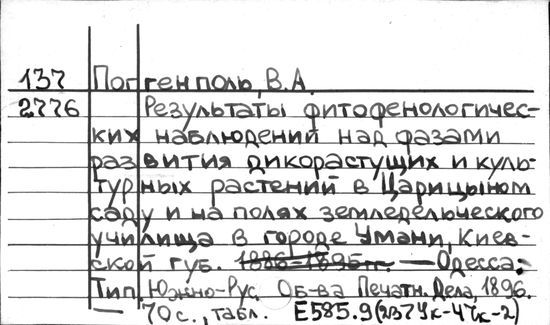 137 Поггенполь, В.А.
2776 Результаты фитофенологичес-
ких наблюдений над фазами
развития дикорастущих и куль-
турных растений в Царицыном
саду и на полях земледельческого
училища в городе Умани, Киев-
ской губ. 1886-1895 гг. — Одесса:
Тип. Южно-Рус. Об-ва Печатн. Дела, 1896.
— 70 с., табл. Е585.9(2В7Ук-4Чк-2)